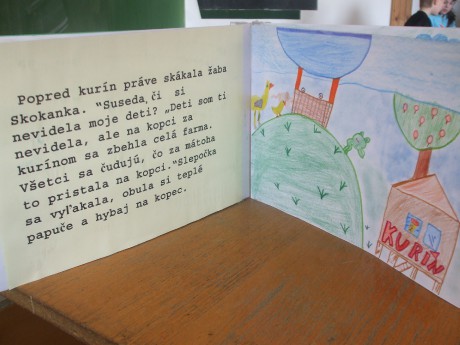 Popred kurín práve skákala žaba
Skokanka. "Suseda, či si
nevidela moje deti? „Deti som ti
nevidela, ale na kopci za
kurínom sa zbehla celá farma.
Všetci sa čudujú, čo za mátoha
to pristala na kopci."Slepočka
sa vyľakala, obula si teplé
papuče a hybaj na kopec.
KURÍN